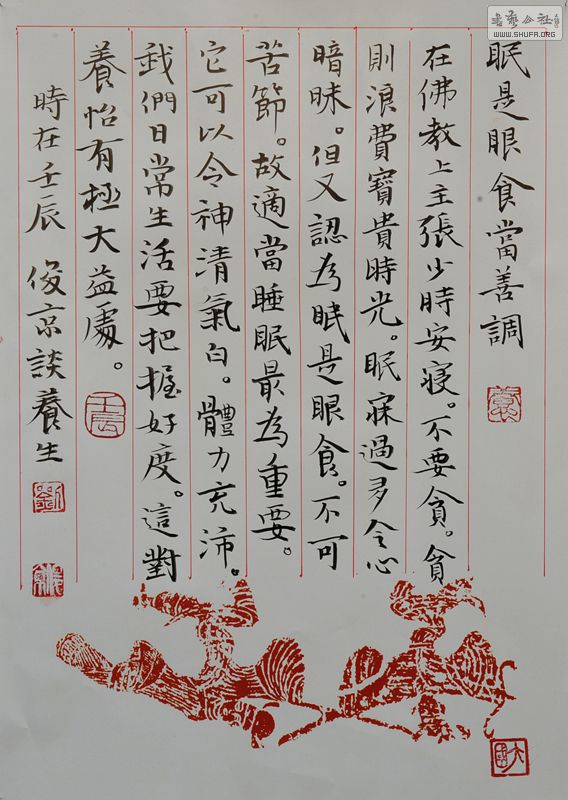 眠是眼食當善調
在佛教上主張少時安寢。不要貪。貪
則浪費寶貴時光。眠寐過多令心
暗昧。但又認為眠是眼食。不可
苦節。故適當睡眠最為重要。
它可以令神清氣白。體力充沛。
我們日常生活要把握好度。這對
養怡有極大益處。
時在壬辰 俊京談養生
壬辰
劉
書藝公社
WWW.SHUFA.ORG